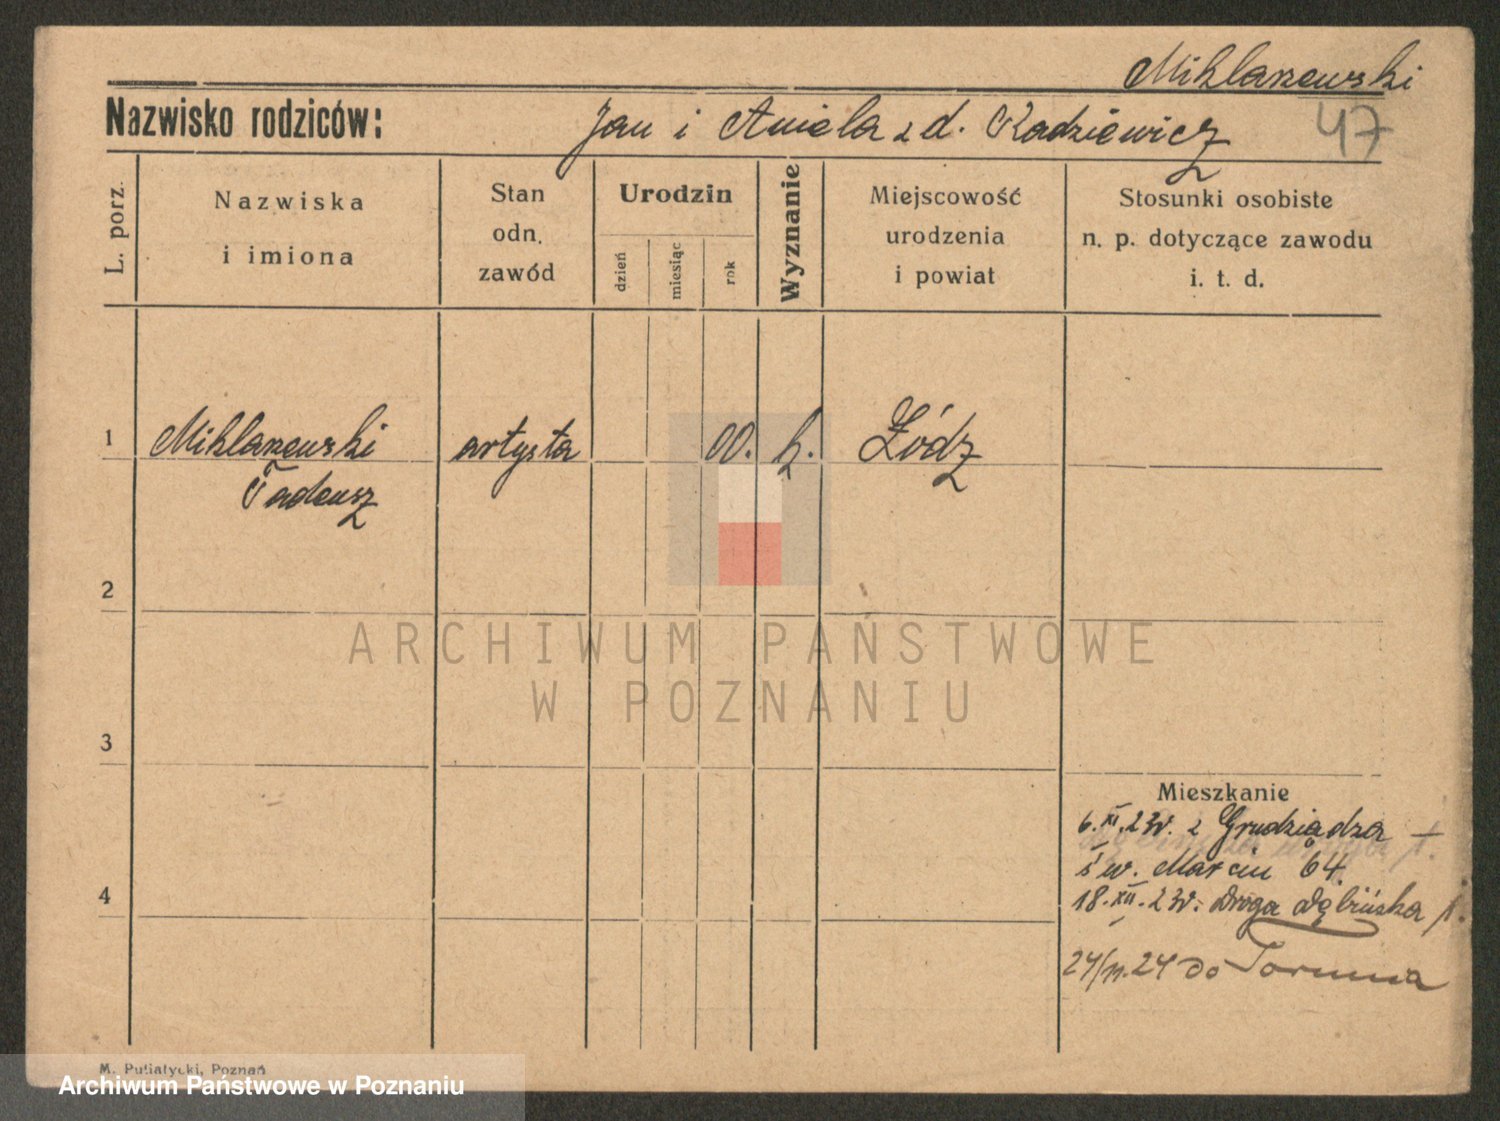 Miklaszewski
Nazwisko rodziców: Jan i Aniela z d. Radziewicz
47
L. porz.
Nazwiska
i imiona
Stan
odn.
zawód
Urodzin
dzień
miesiąc
rok
Wyznanie
Miejscowość
urodzenia
i powiat
Stosunki osobiste
n. p. dotyczące zawodu
i. t. d.
1 Miklaszewski artysta 00. k. Łódź
Tadeusz
2
ARCHIWUM PAŃSTWOWE
W POZNANIU
3
Mieszkanie
6.XI.23r. z Grudziądza
św. Marcin 64.
4
18.XII.23r. Droga Dębińska 1.
24/11.24 do Torunia
M. Putiatycki, Poznań
Archiwum Państwowe w Poznaniu